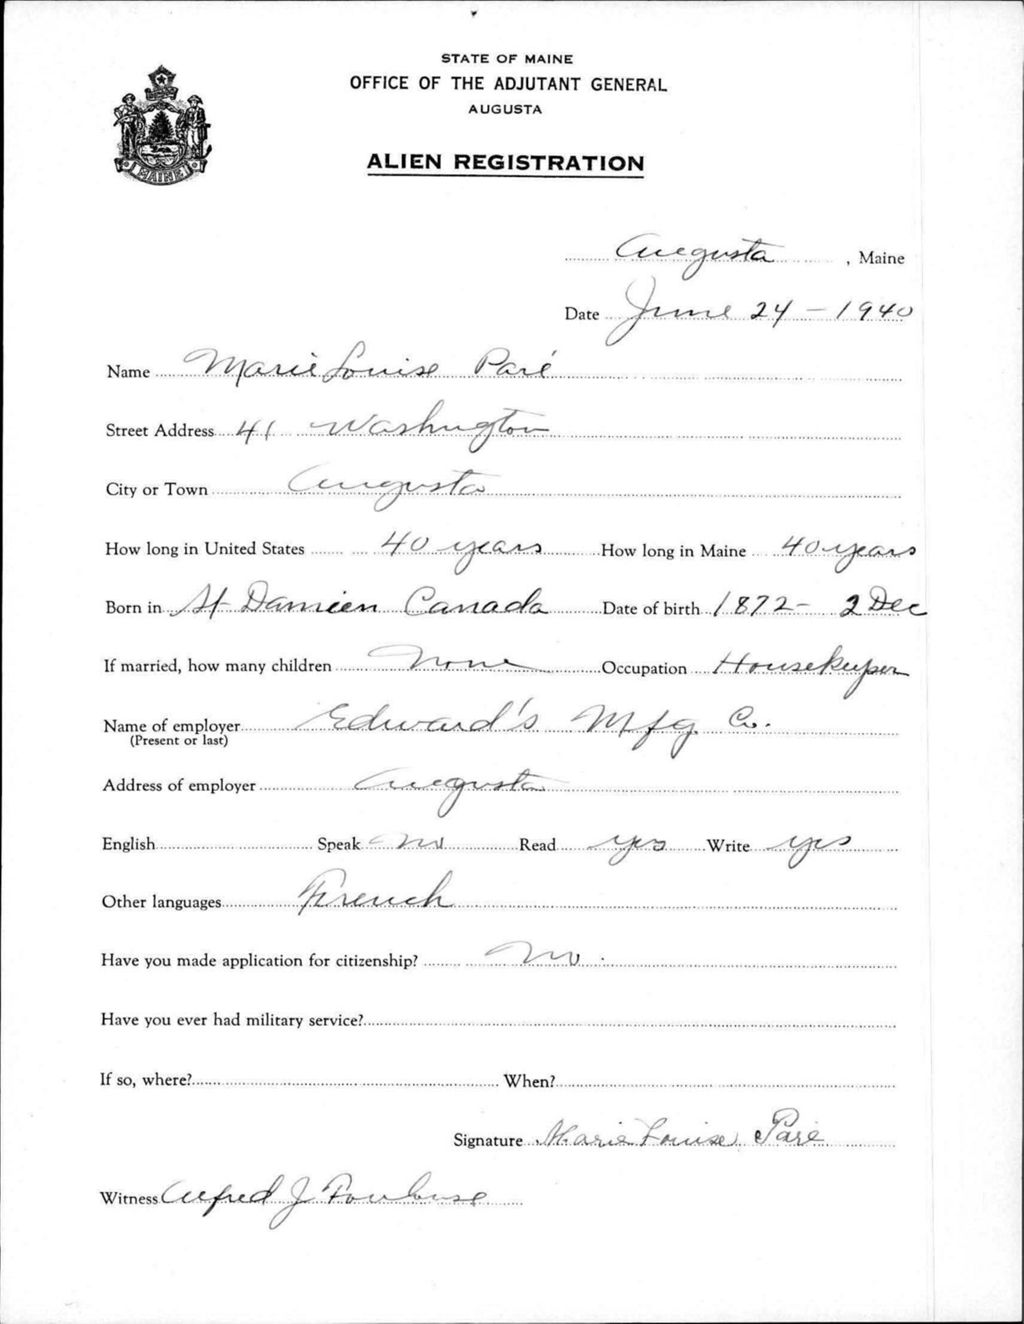 STATE OF MAINE
OFFICE OF THE ADJUTANT GENERAL
AUGUSTA
MAINE
ALIEN REGISTRATION
Augusta, Maine
Date June 24 - 1940
Name Marie Louise Paré
Street Address 41 Washington
City or Town Augusta
How long in United States 40 years How long in Maine 40 years
Born in St Damien Canada Date of birth 1872 - 2 Dec
If married, how many children None Occupation Housekeeper
Name of employer Edward's Mfg Co.
(Present or last)
Address of employer Augusta
English Speak No Read yes Write yes
Other languages French
Have you made application for citizenship? No.
Have you ever had military service?
If so, where? When?
Signature Marie Louise Paré
Witness Alfred J